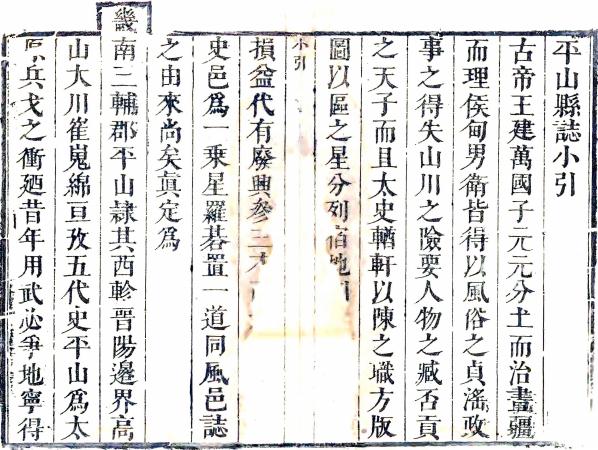 平山縣誌小引
古帝王建萬國子元元分土而治畫疆
而理侯甸男衛皆得以風俗之貞滛政
事之得失山川之險要人物之臧否貢
之天子而且太史輶軒以陳之職方版
圖以區之星分列宿地
小引
損益代有廢興參三才
史邑爲一乗星羅碁置一道同風邑誌
之由來尚矣眞定爲
畿
南三輔郡平山隷其西軫晉陽邊界高
山大川崔嵬綿亘攷五代史平山爲太
原兵戈之衝廼昔年用武必爭地寧得